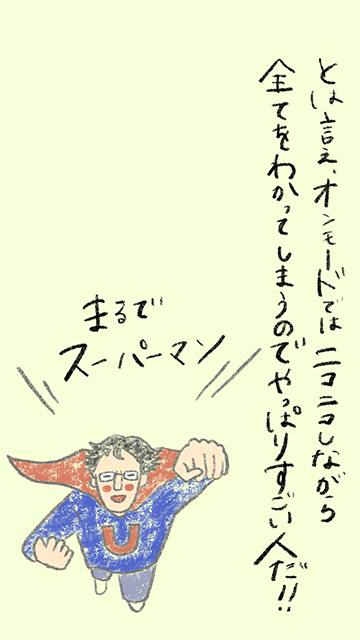 とは言え、オンモードではニコニコしながら
全てをわかってしまうのでやっぱりすごい人だ!!
まるで
スーパーマン
U